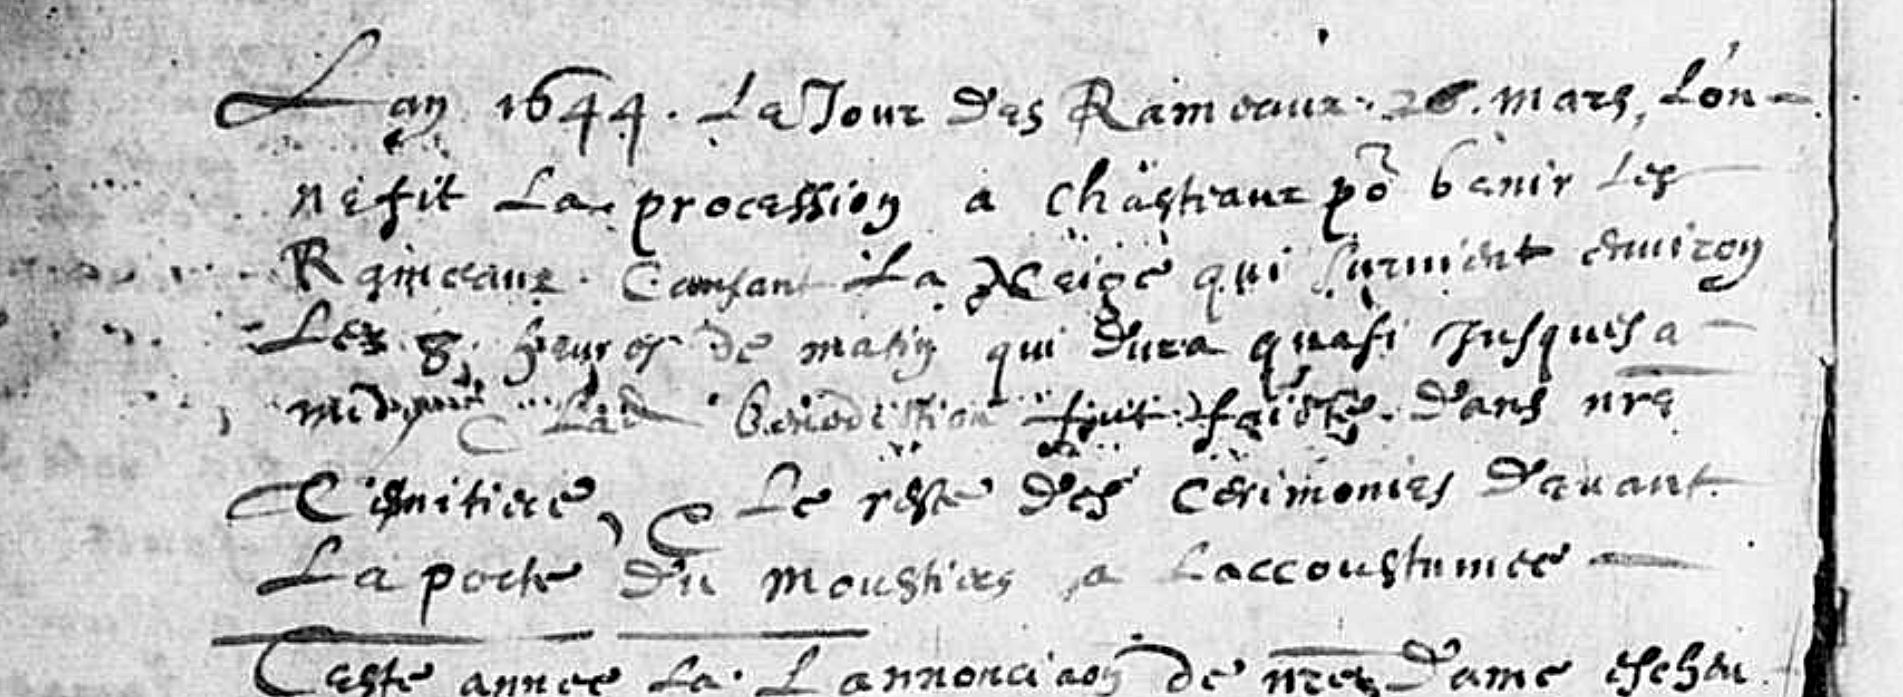 Lan 1644. Le Jour des Rameaux. 20. mars, Lon
ne fit La procession a Chasteaux po benir Les
Rameaux. Causant La Neige qui survient environ
Les 8. heures de matin qui dura quasi Jusques a
midy Lad benediction fut faicte dans nre
Cemitiere, & Le reste des cerimonies devant
La porte du moustiers a Laccoustumee
Ceste annee La Lannonciaon de nre Dame escheu